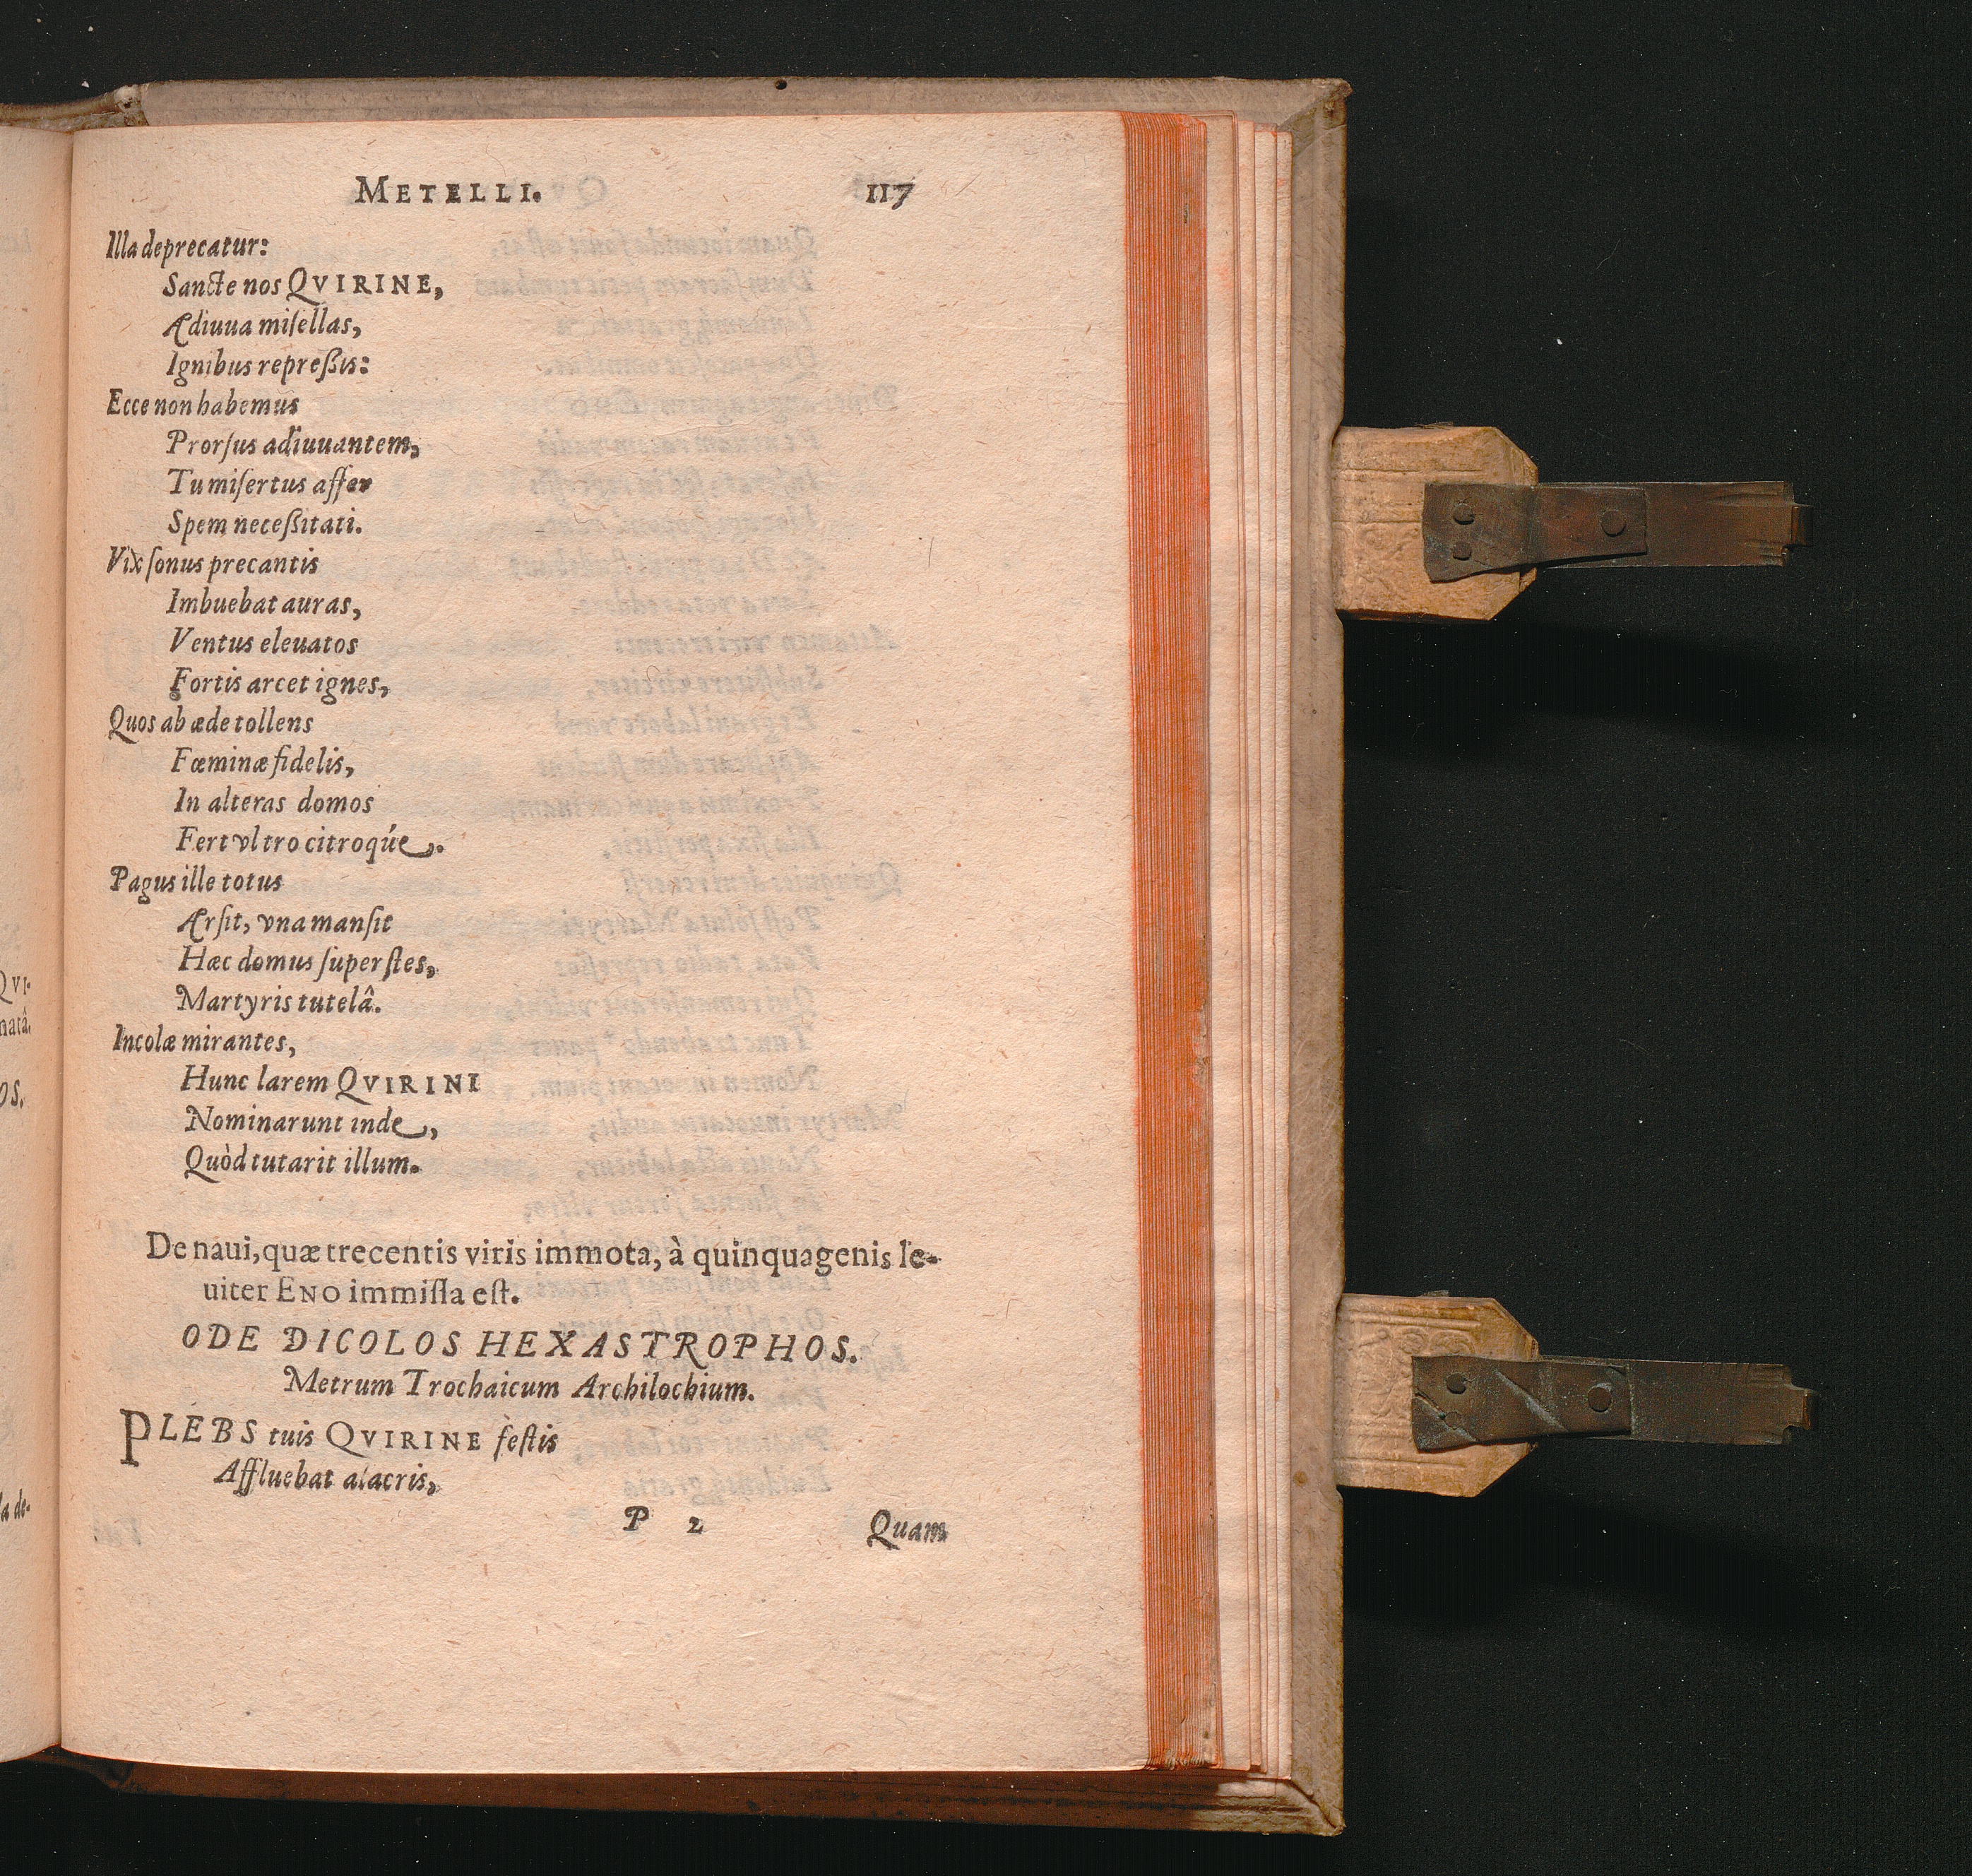 METELLI. 117
Illa deprecatur:
Sancte nos QVIRINE,
Adiuua miſellas,
Ignibus repreßis:
Ecce non habemus
Prorſus adiuuantem,
Tu miſertus affer
Spem neceßitati.
Vix ſonus precantis
Imbuebat auras,
Ventus eleuatos
Fortis arcet ignes,
Quos ab æde tollens
Fœminæ fidelis,
In alteras domos
Fert vltro citroqúe.
Pagus ille totus
Arſit, vna manſit
Hæc domus ſuperſtes,
Martyris tutelâ.
Incolæ mirantes,
Hunc larem QVIRINI
Nominarunt inde,
Quòd tutarit illum.
De naui, quæ trecentis viris immota, à quinquagenis le-
uiter ENO immiſſa eſt.
ODE DICOLOS HEXASTROPHOS.
Metrum Trochaicum Archilochium.
PLEBS tuis QVIRINE feſtis
Affluebat alacris,
P 2 Quam